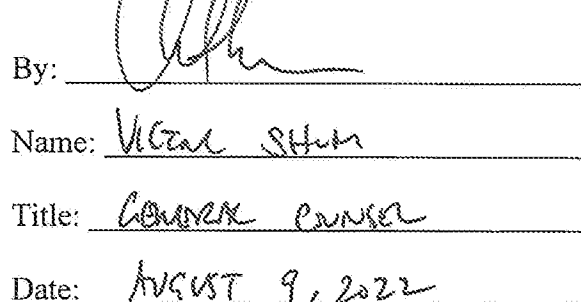 By:
Name: VICTOR SHUM
Title: GENERAL COUNSEL
Date: AUGUST 9, 2022